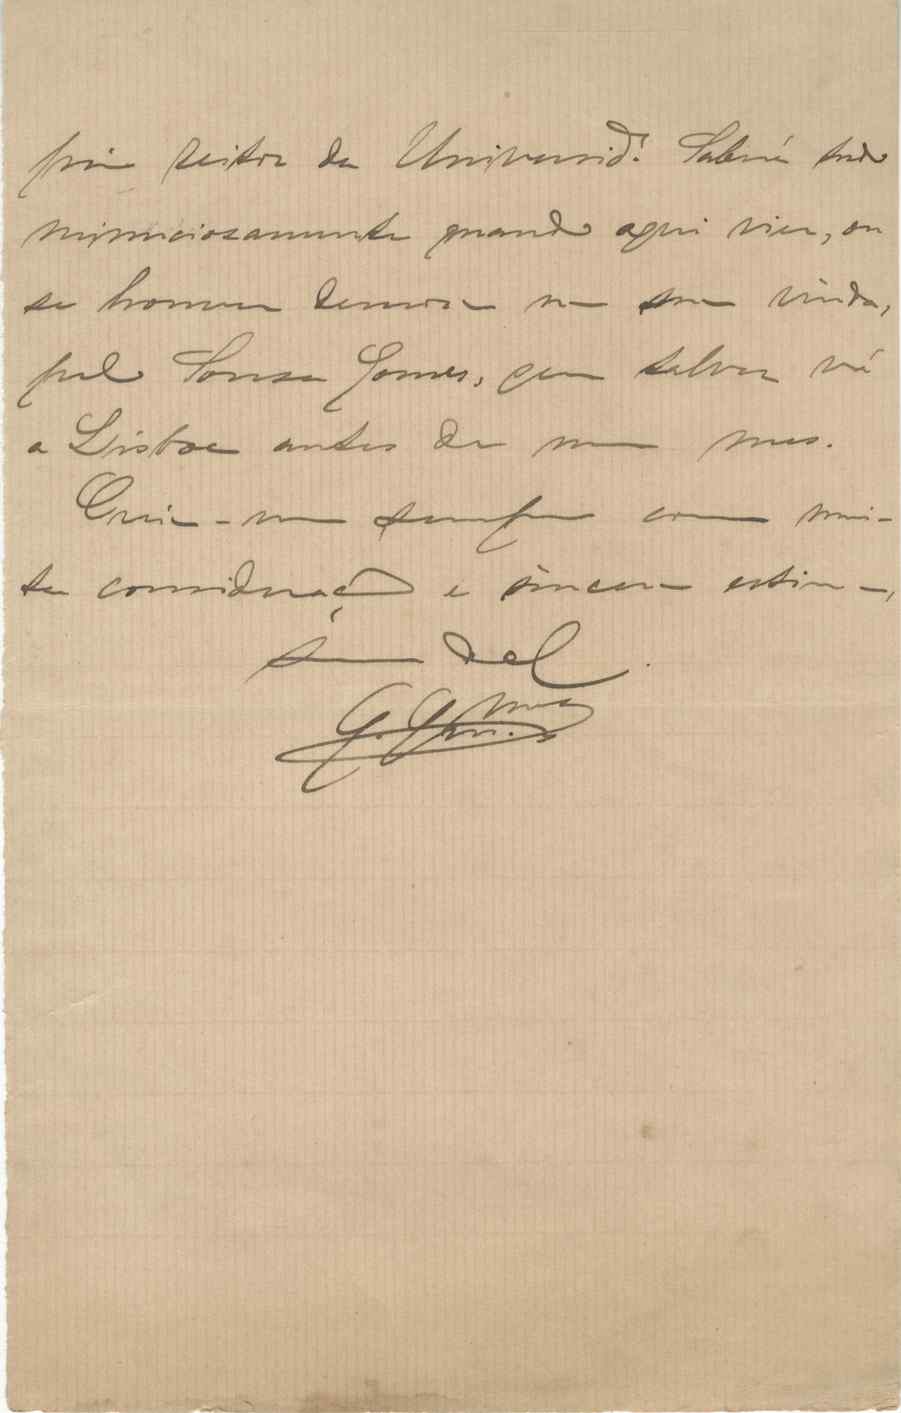 reitor da Universid.e Saberá tudo
minuciosamente quando aqui vier, ou
se houver demora na sua vinda,
pelo Sousa Gomes, que talvez vá
a Lisboa antes de um mes.
Creia-me sempre com mui-
ta consideração e sincera estima,
G.